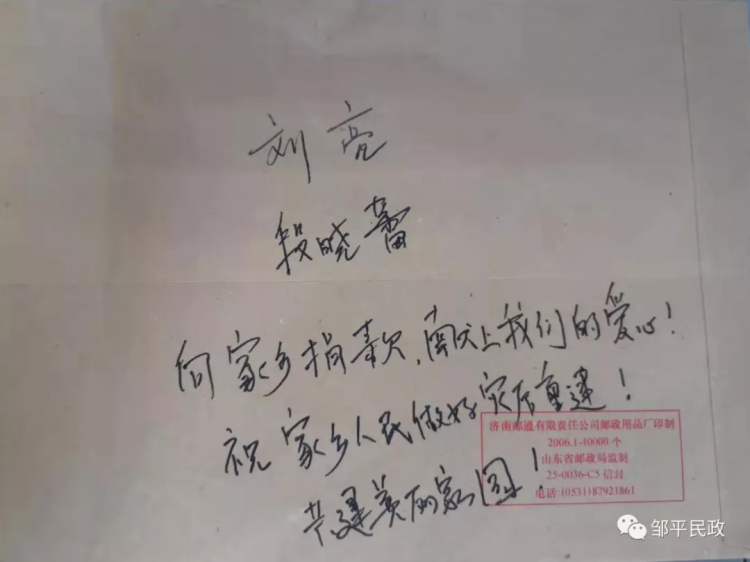 刘亮
段晓蕾
向家乡捐款,献上我们的爱心!
祝家乡人民做好灾后重建!
共建美丽家园!
济南邮通有限责任公司邮政用品厂印制
2006.1-10000 个
山东省邮政局监制
25-0036-C5 信封
电话:(0531)87921861
邹平民政